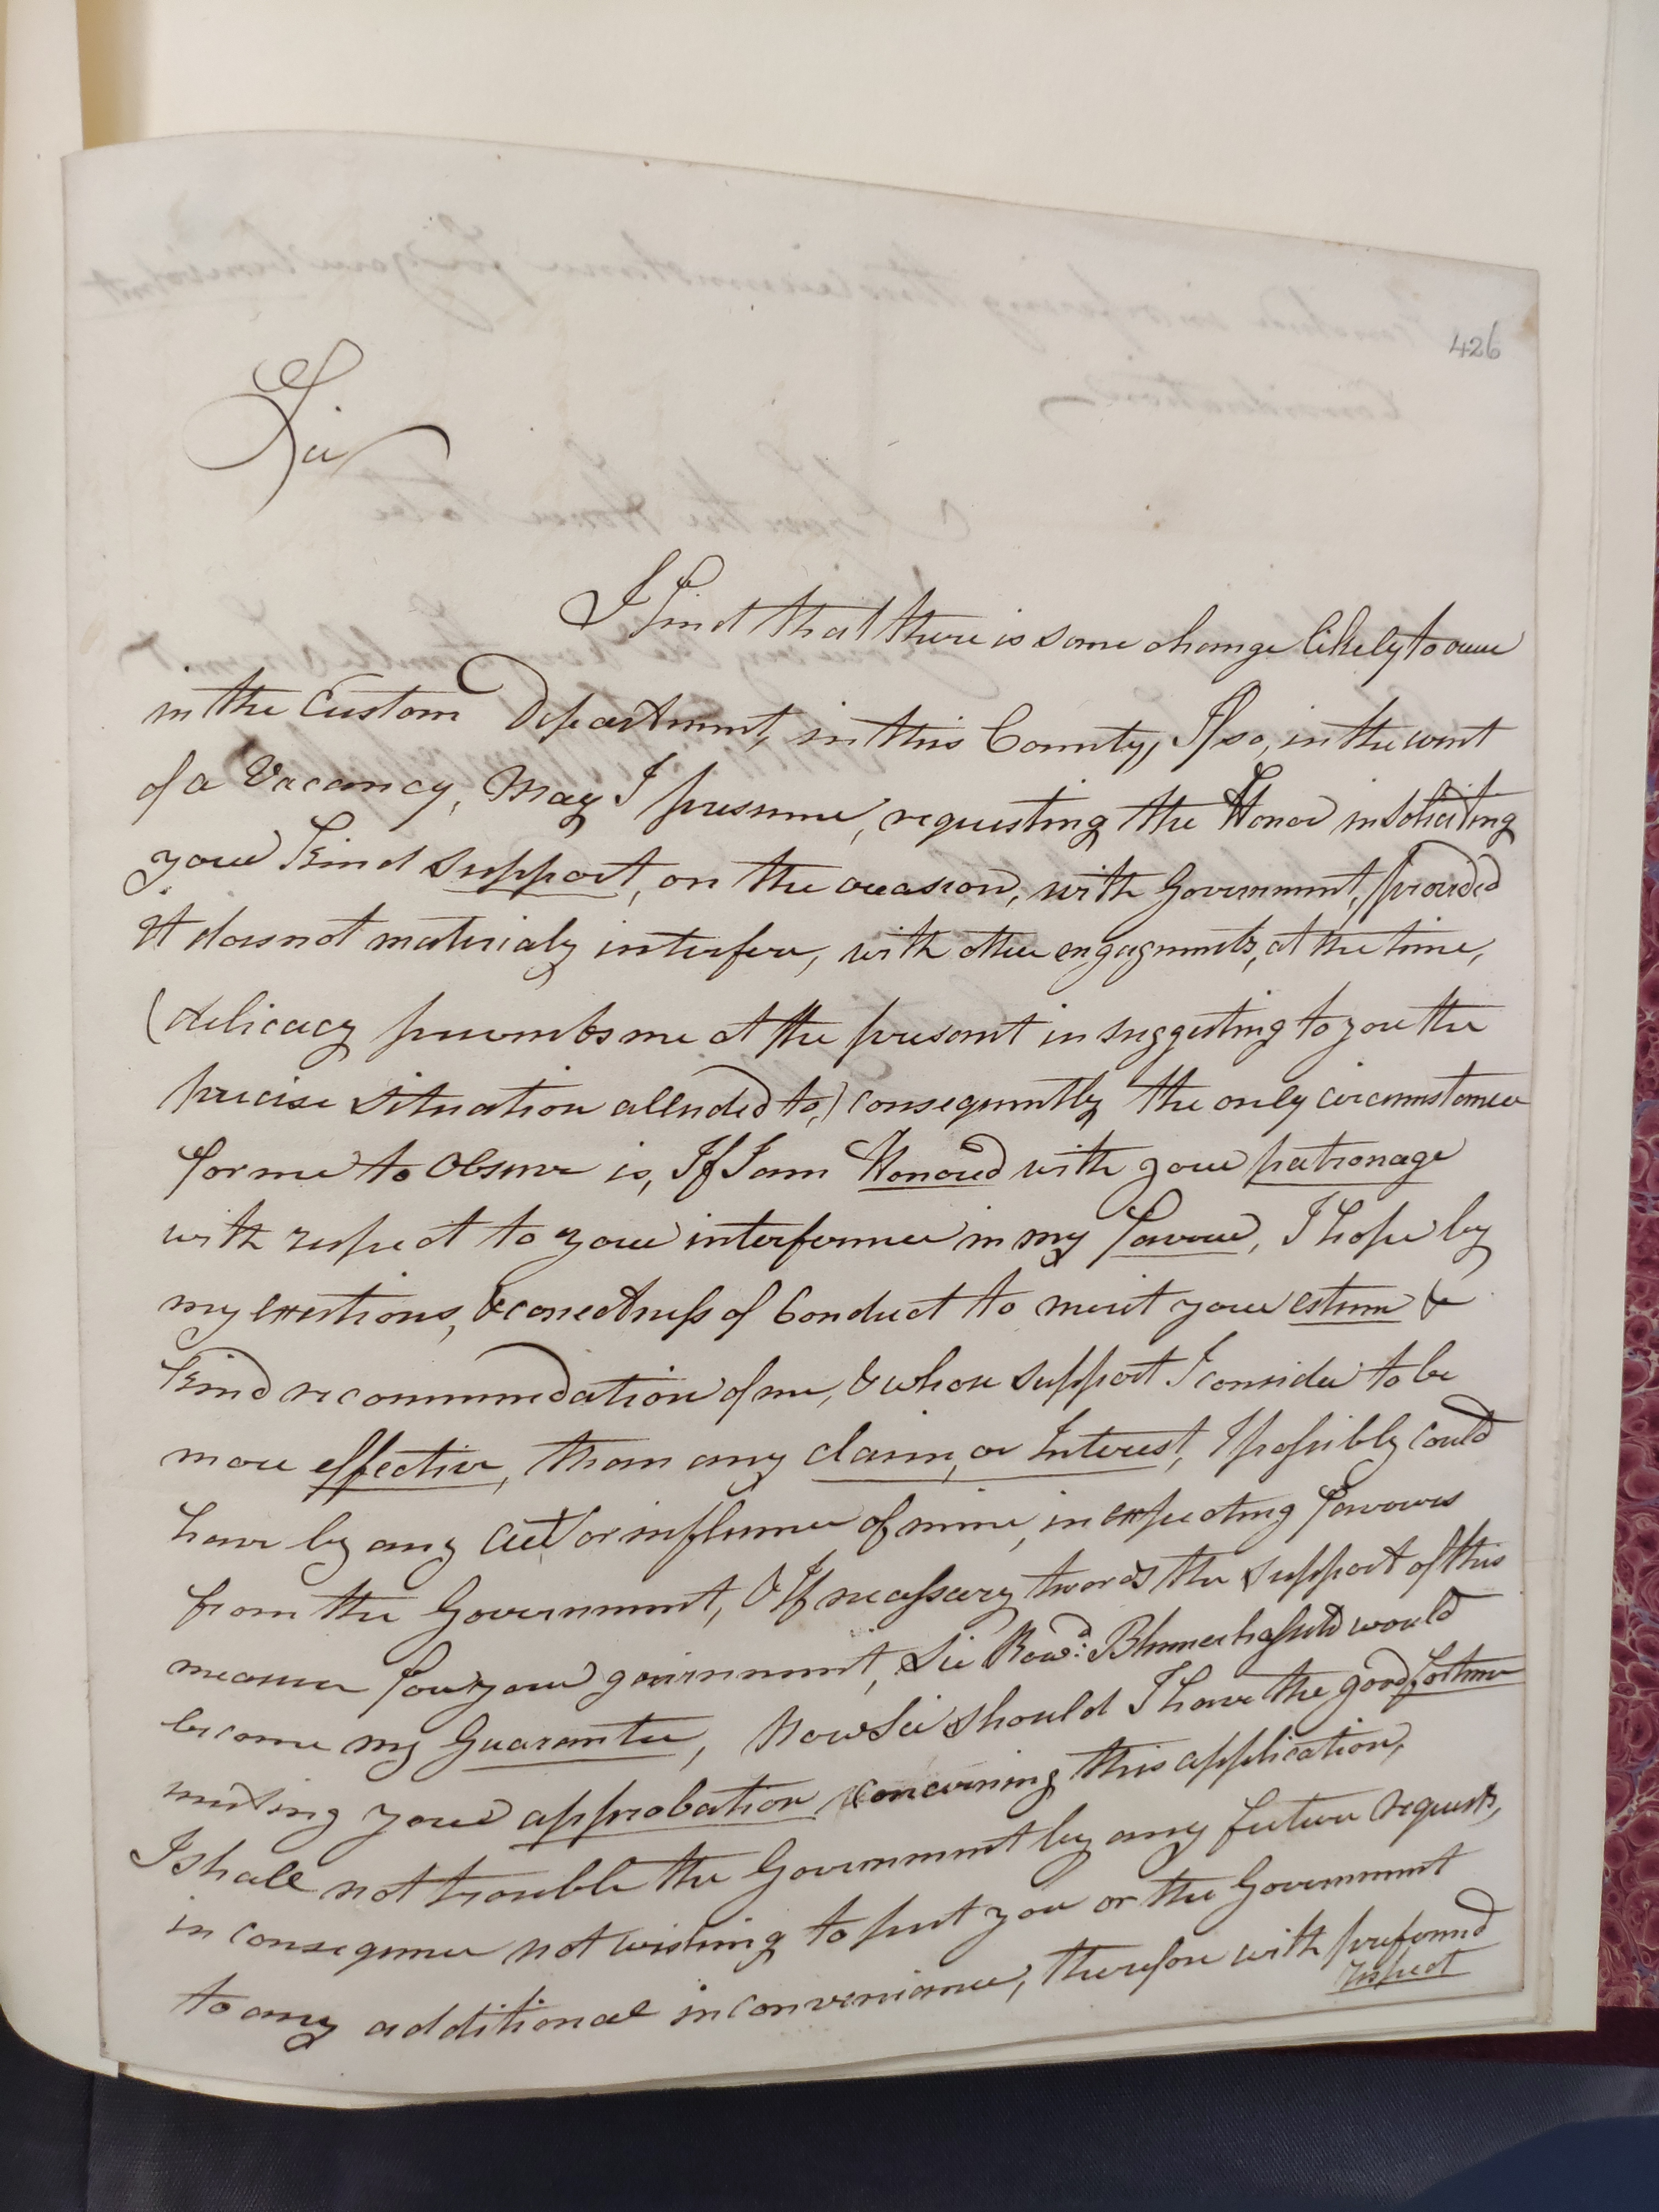 426
Sir
I find that there is some change likely to occur
in the Custom Department, in this County, If so, in the event
of a Vacancy, May I presume, requesting the Honor in soliciting
your kind support, on the occasion, with Government, provided
it does not materialy interfere, with other engagments, at the time,
(delicacy prevents me at the present in suggesting to you the
precise situation alluded to,) consequently the only circumstance
for me to observe is, If I am Honored with your patronage
with respect to your interference in my favour, I hope by
my exertions, & corectness of Conduct to merit your esteem &
kind recommendation of me, & whose support I consider to be
more effective, than any claim, or Interest, I possibly could
have by any act or influence of mine, in expecting favours
from the Government, & If necessary towards the support of this
measure for your government, Sir Rowd. Blennerhassett would
become my Guarantee, Now Sir should I have the good fortune
meeting your approbation concerning this application,
I shall not trouble the Government by any future requests,
in consequence not wishing to put you or the Government
to any additional inconvenience, therefore with profound
respect